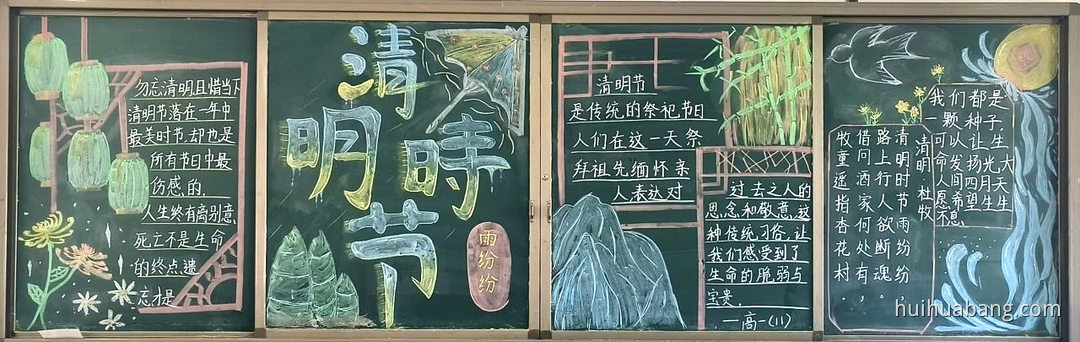 勿忘清明且惜当下
清明节落在一年中
最美时节,却也是
所有节日中最
伤感的。
人生终有离别意,
死亡不是生命
的终点,遗
忘才是
清
明时
节
雨纷纷
清明节
是传统的祭祀节日
人们在这一天祭
拜祖先缅怀亲
人表达对
过去之人的
思念和敬意,这
种传统习俗,让
我们感受到了
生命的脆弱与
宝贵。
—高一(11)
我们都是
一颗种子
可以让生
命发扬光大
人间四月天
愿希望生生
不息
清明 杜牧
清明时节雨纷纷,
路上行人欲断魂。
借问酒家何处有,
牧童遥指杏花村
huihuabang.com